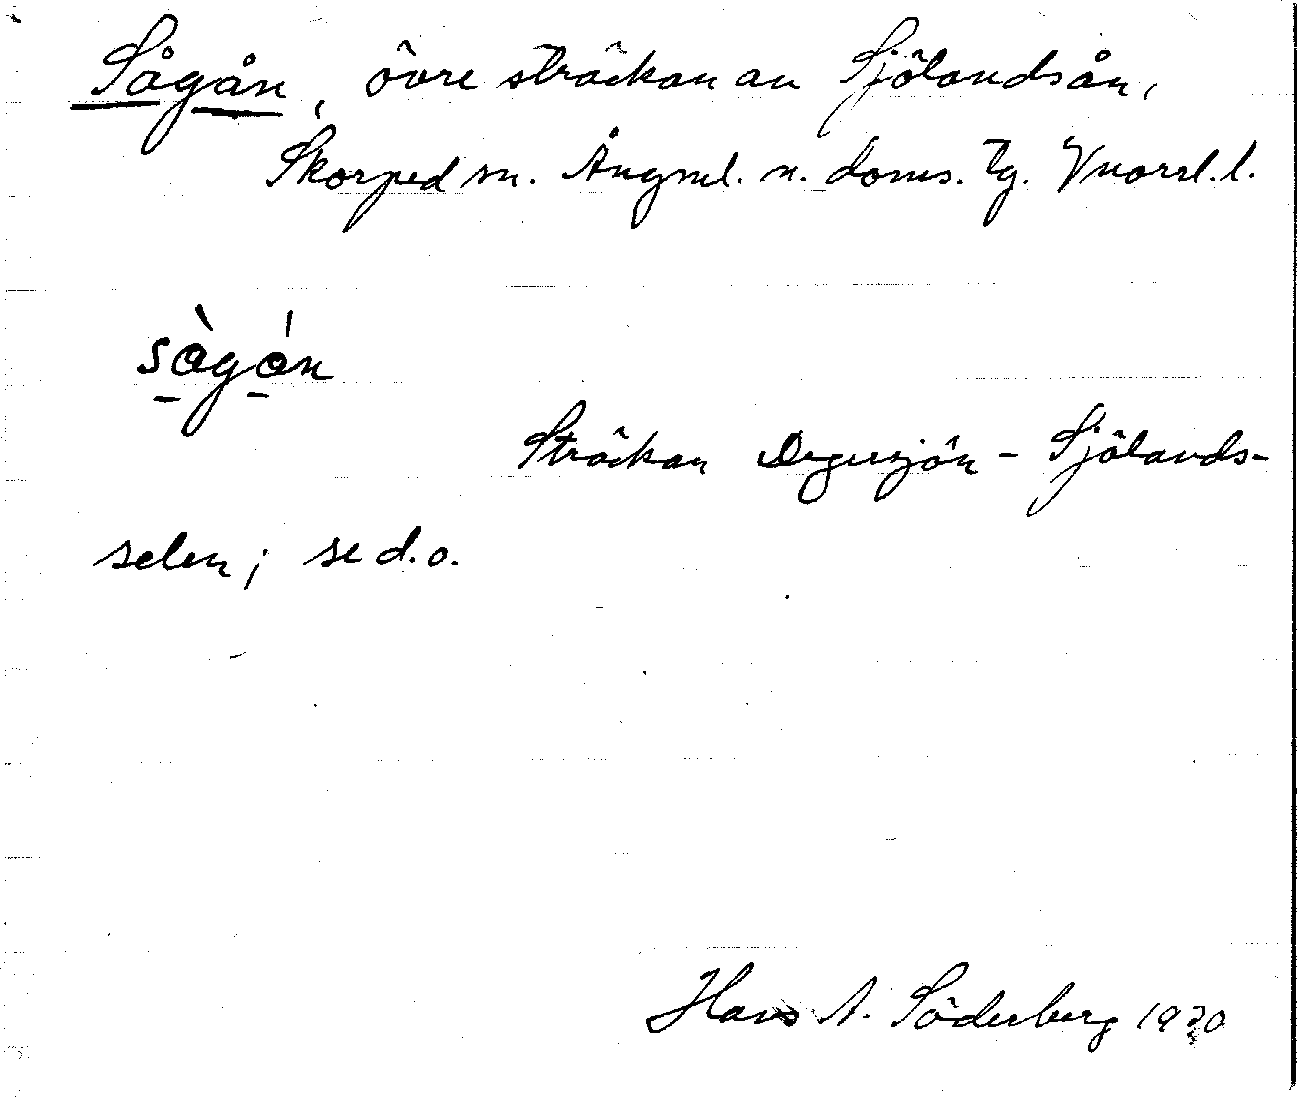 Sågån, övre sträckan av Sjölandsån,
Skorped sn. Ångml. n. doms. tg. Vnorrl. l.
sògón
Sträckan Degersjön - Sjölands-
selen; se d.o.
Hans A. Söderberg 1930